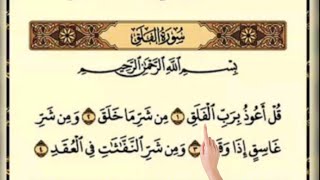 سُورَةُ الفَلَقِ
بِسْمِ اللَّهِ الرَّحْمَنِ الرَّحِيمِ
قُلْ أَعُوذُ بِرَبِّ الْفَلَقِ ١ مِن شَرِّ مَا خَلَقَ ٢ وَمِن شَرِّ
غَاسِقٍ إِذَا ٣ وَمِن شَرِّ النَّفَّاثَاتِ فِي الْعُقَدِ ٤